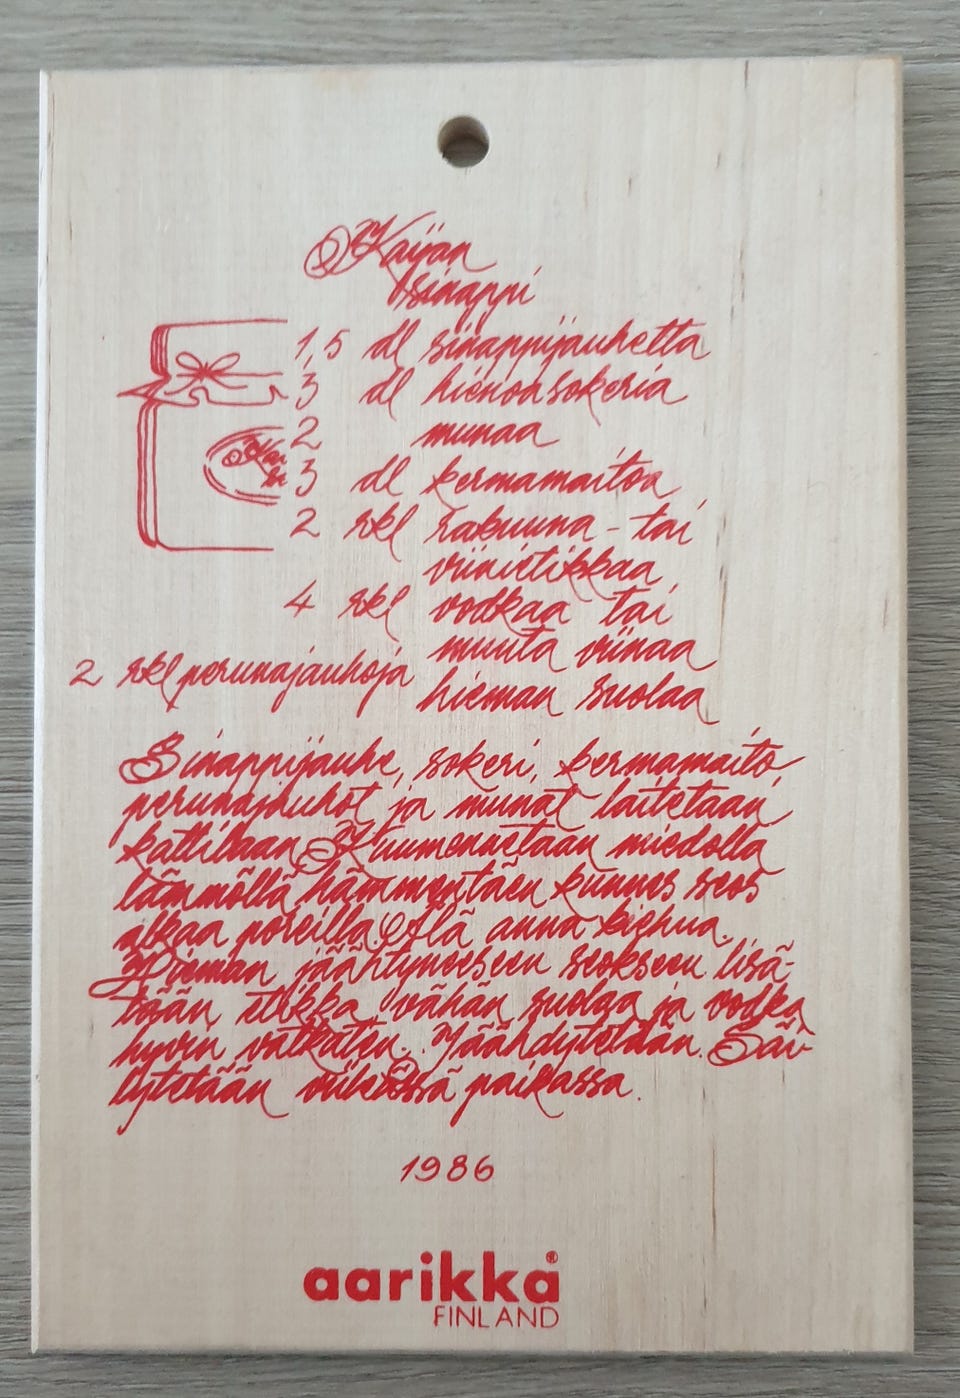 Kaijan
sinappi
1,5 dl sinappijauhetta
3 dl hienoa sokeria
2 munaa
Kai
si
3 dl kermamaitoa
2 rkl rakuuna- tai
viinietikkaa
4 rkl vodkaa tai
muuta viinaa
2 rkl perunajauhoja
hieman suolaa
Sinappijauhe, sokeri, kermamaito,
perunajauhot ja munat laitetaan
kattilaan. Kuumennetaan miedolla
lämmöllä hämmentäen kunnes seos
alkaa poreilla. Älä anna kiehua.
Hieman jäähtyneeseen seokseen lisä-
tään etikka, vähän suolaa ja vodka
hyvin vatkaten. Jäähdytetään. Säi-
lytetään viileässä paikassa.
1986
aarikka®
FINLAND